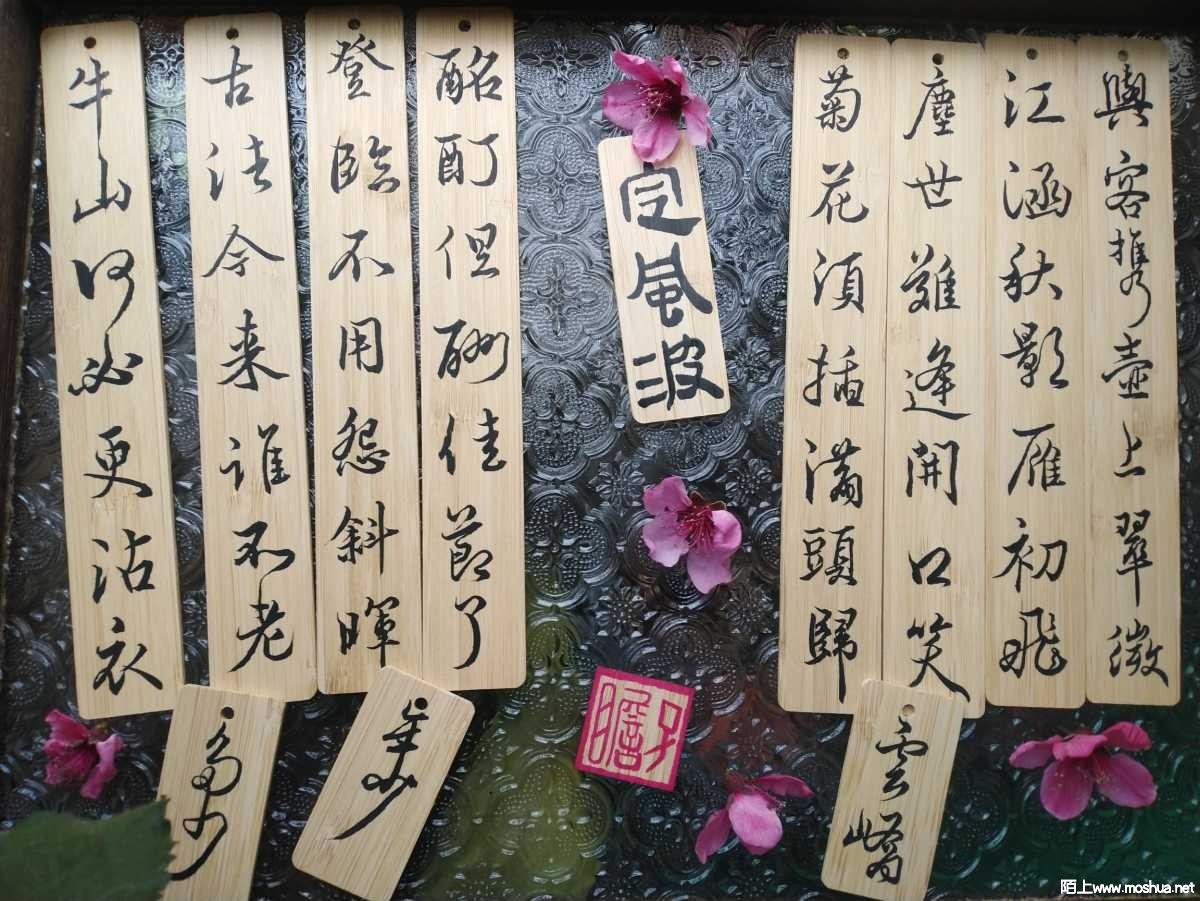 與客携壺上翠微
江涵秋影雁初飛
塵世難逢開口笑
雲嶠
菊花須插滿頭歸
定風波
子瞻
酩酊但酬佳節了
登臨不用怨斜暉
年少
古往今来誰不老
多少
牛山何必更沾衣
陌上www.moshua.net